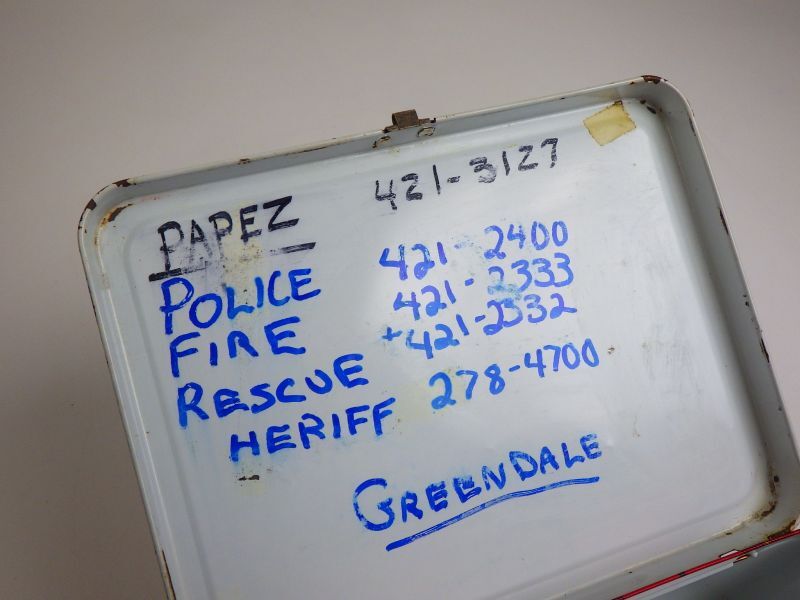 PAPEZ 421-3127
POLICE 421-2400
FIRE 421-2333
RESCUE +421-2332
HERIFF 278-4700
GREENDALE